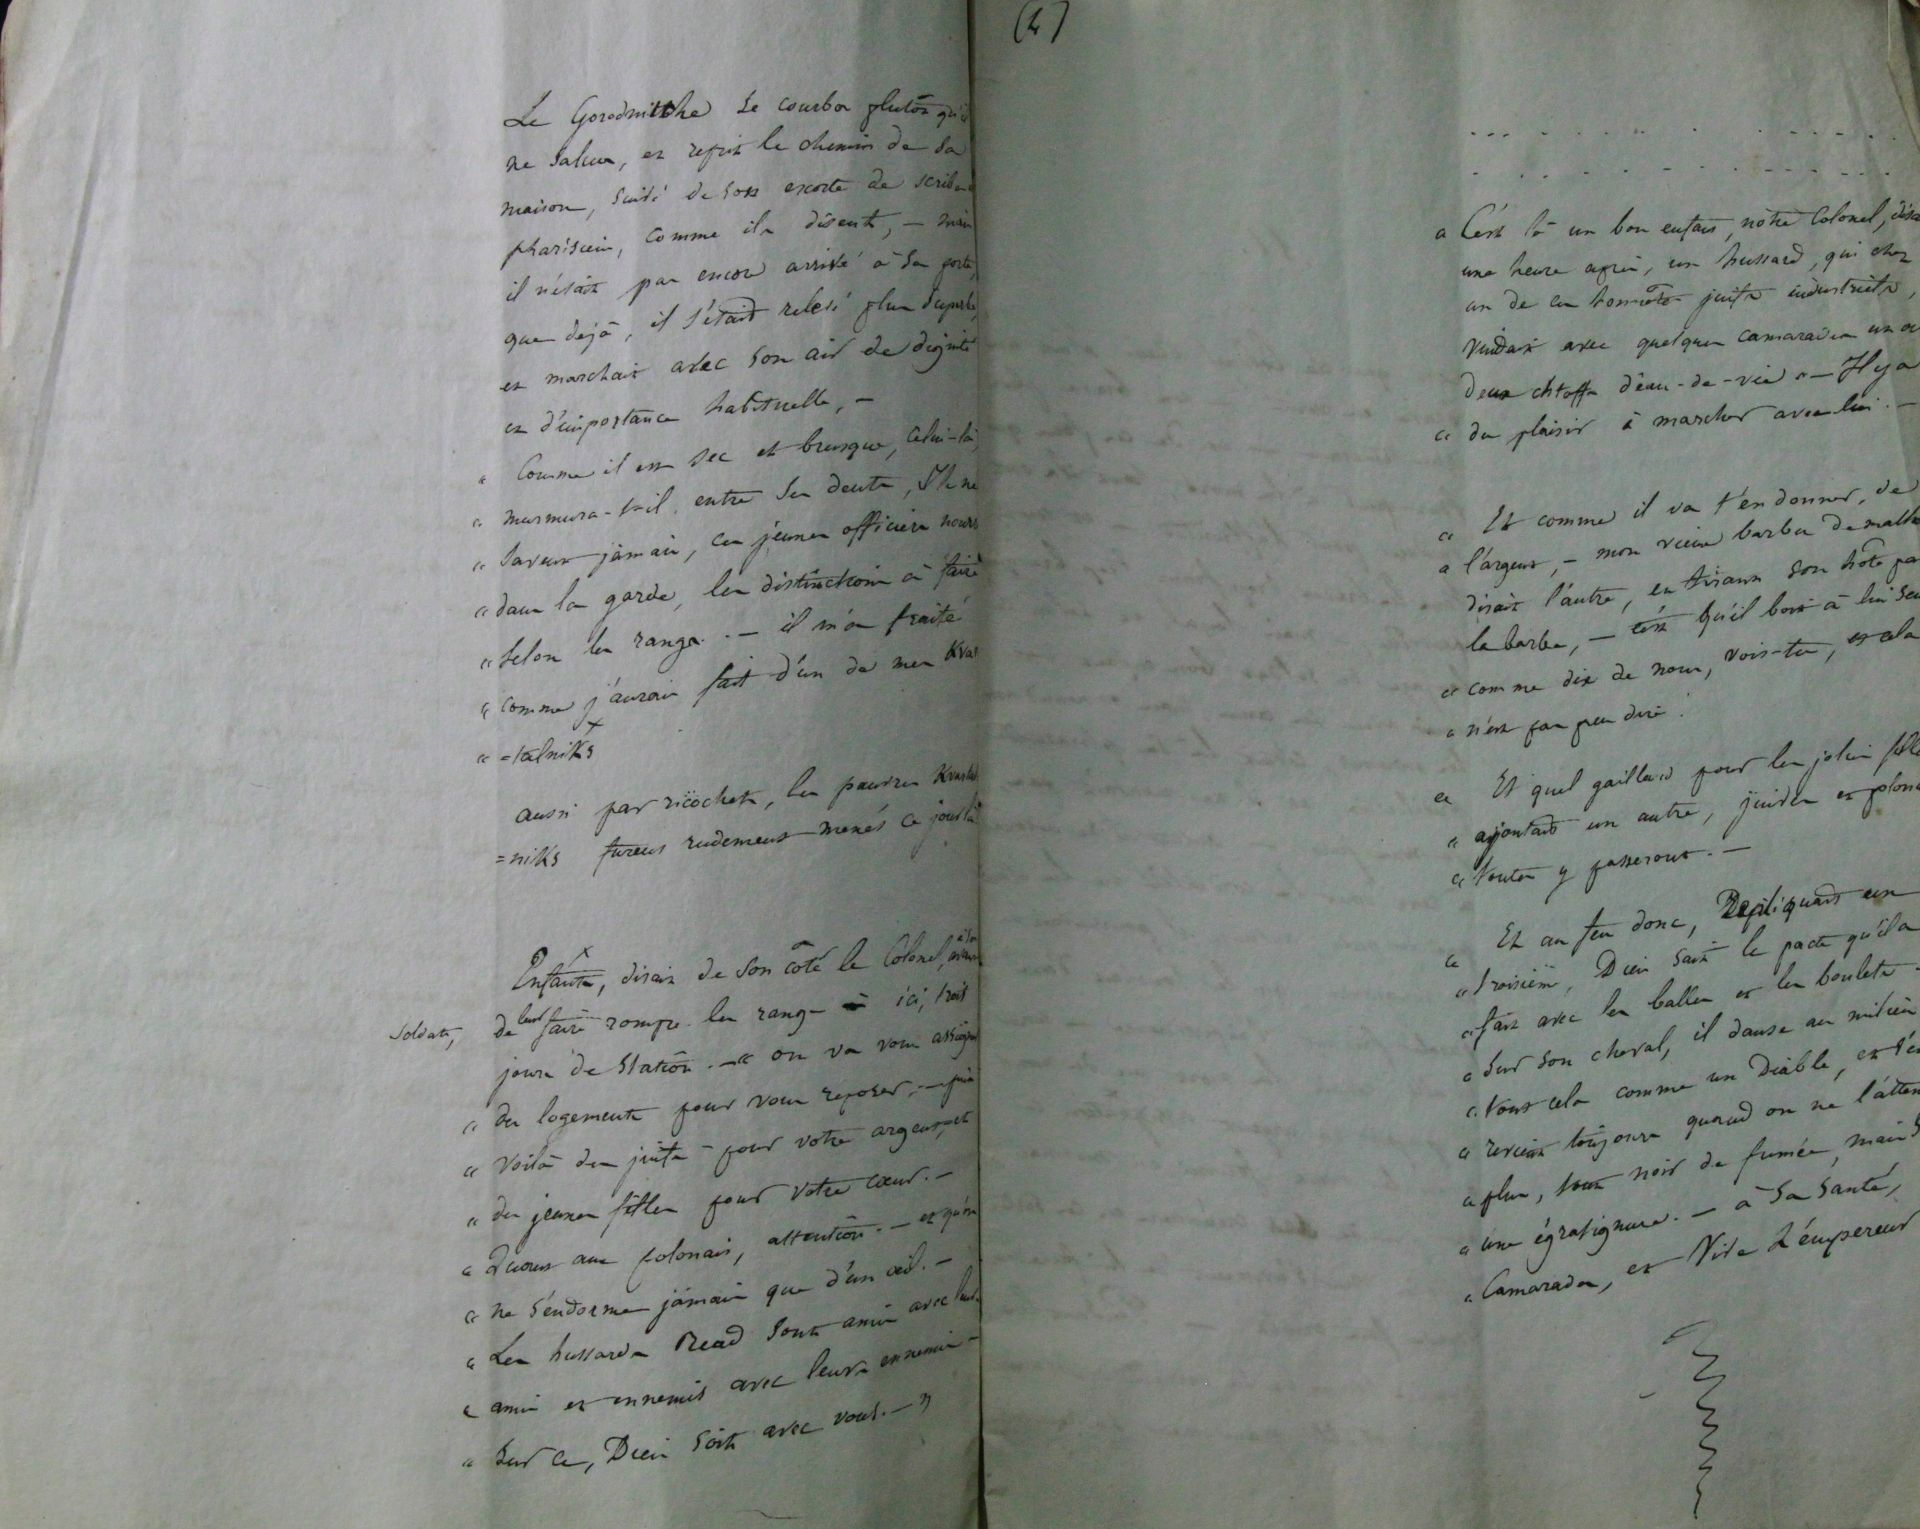 Le Gorodnitche se courba plutôt qu'il
ne salua, et reprit le chemin de sa
maison, suivi de son escorte de scribes
pharisien, comme ils disent, — mais
il n'était pas encore arrivé à sa porte,
que déjà, il s'était relevé plus superbe,
et marchait avec son air de dignité
et d'importance habituelle, —
« Comme il est sec et brusque, celui-là,
« murmura-t-il entre ses dents, Ils ne
« savent jamais, ces jeunes officiers nourris
« dans la garde, les distinctions à faire
« selon les rangs. — il m'a traité
« comme j'aurais fait d'un de mes Kvar
« =talniks
aussi par ricochet, les pauvres Kvartal
=niks furent rudement menés ce jour là
Enfants, disait de son côté le Colonel, avant
soldats,
de leur faire rompre les rangs — ici, trois
jours de station. — « on va vous assigner
« des logements pour vous reposer. — puis
« voilà des juifs pour votre argent, et
« des jeunes filles pour votre cœur. —
« Quant aux polonais, attention. — et qu'on
« ne s'endorme jamais que d'un œil. —
« Les hussards Read sont amis avec leurs
« amis et ennemis avec leurs ennemis —
« Sur ce, Dieu soit avec vous. — »
(4)
« C'est là un bon enfant, notre Colonel, disa
une heure après, un hussard, qui chez
un de ces honnêtes juifs industriels,
vuidait avec quelques camarades un ou
deux chtoffs d'eau-de-vie « — Il y a
« du plaisir à marcher avec lui. —
« Et comme il va t'en donner, de
« l'argent, — mon vieux barbu de malh
disait l'autre, en tirant son hôte par
la barbe, — c'est qu'il boit à lui seul
« comme dix de nous, vois-tu, et cela
« n'est pas peu dire.
« Et quel gaillard pour les jolies filles
« ajoutait un autre, juives et polona
« toutes y passeront. —
« Et au feu donc, Répliquait un
« troisième, Dieu sait le pacte qu'il a
« fait avec les balles et les boulets —
« sur son cheval, il danse au milieu
« tout cela comme un Diable, et s'en
« revient toujours quand on ne l'atten
« plus, tout noir de fumée, mais s
« une égratignure. — à sa santé,
« Camarades, et Vive L'empereur